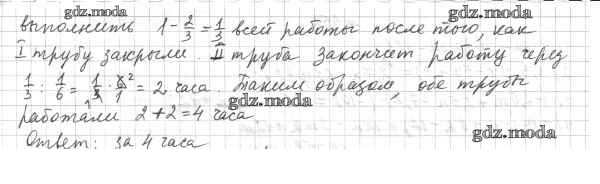 gdz.moda gdz.moda
выполнить 1 - 2/3 = 1/3 всей работы после того, как
I трубу закрыли. II труба закончит работу через
1/3 : 1/6 = 1/3 · 6²/1 = 2 часа. Таким образом, обе трубы
gdz.moda
работали 2 + 2 = 4 часа
gdz.moda
Ответ: за 4 часа